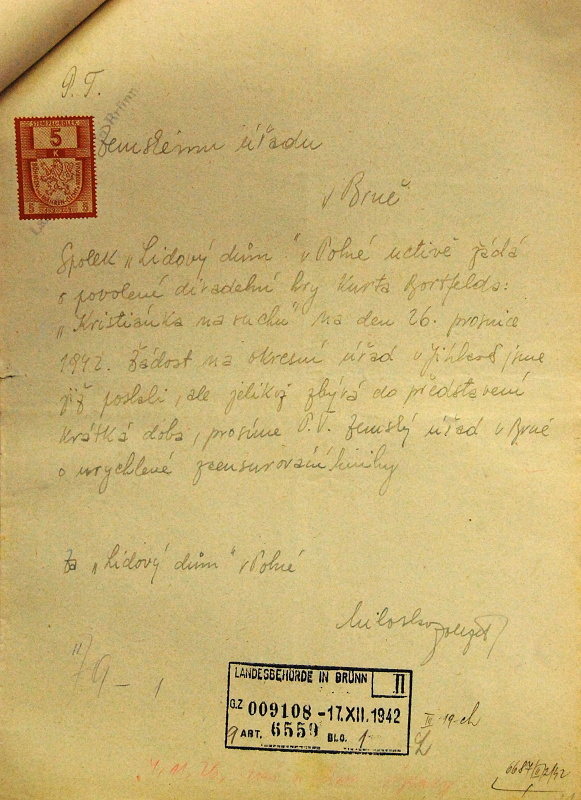 P. T.
zemskému úřadu
v Brně
Spolek „Lidový dům" v Polné uctivě žádá
o povolení divadelní hry Kurta Bortfelda:
„Kristiánka na suchu" na den 26. prosince
1942. Žádost na okresní úřad v Jihlavě jsme
již poslali, ale jelikož zbývá do představení
krátká doba, prosíme P.T. Zemský úřad v Brně
o urychlené zcensurování knihy
Za „Lidový dům" v Polné
Miloslav
LANDESBEHÖRDE IN BRÜNN II
G.Z 009108 -17.XII.1942
ABT. 6559 BLG. 1
IV 19-ch
5 K
5 5